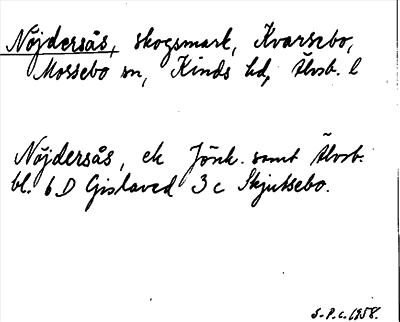 Nöjdersås, skogsmark, Kvarsebo,
Mossebo sn, Kinds hd, Älvsb. l
Nöjdersås, ek Jönk. samt Älvsb.
bl. 6 D Gislaved 3 c Skjutsebo.
S-P.c. 1958.